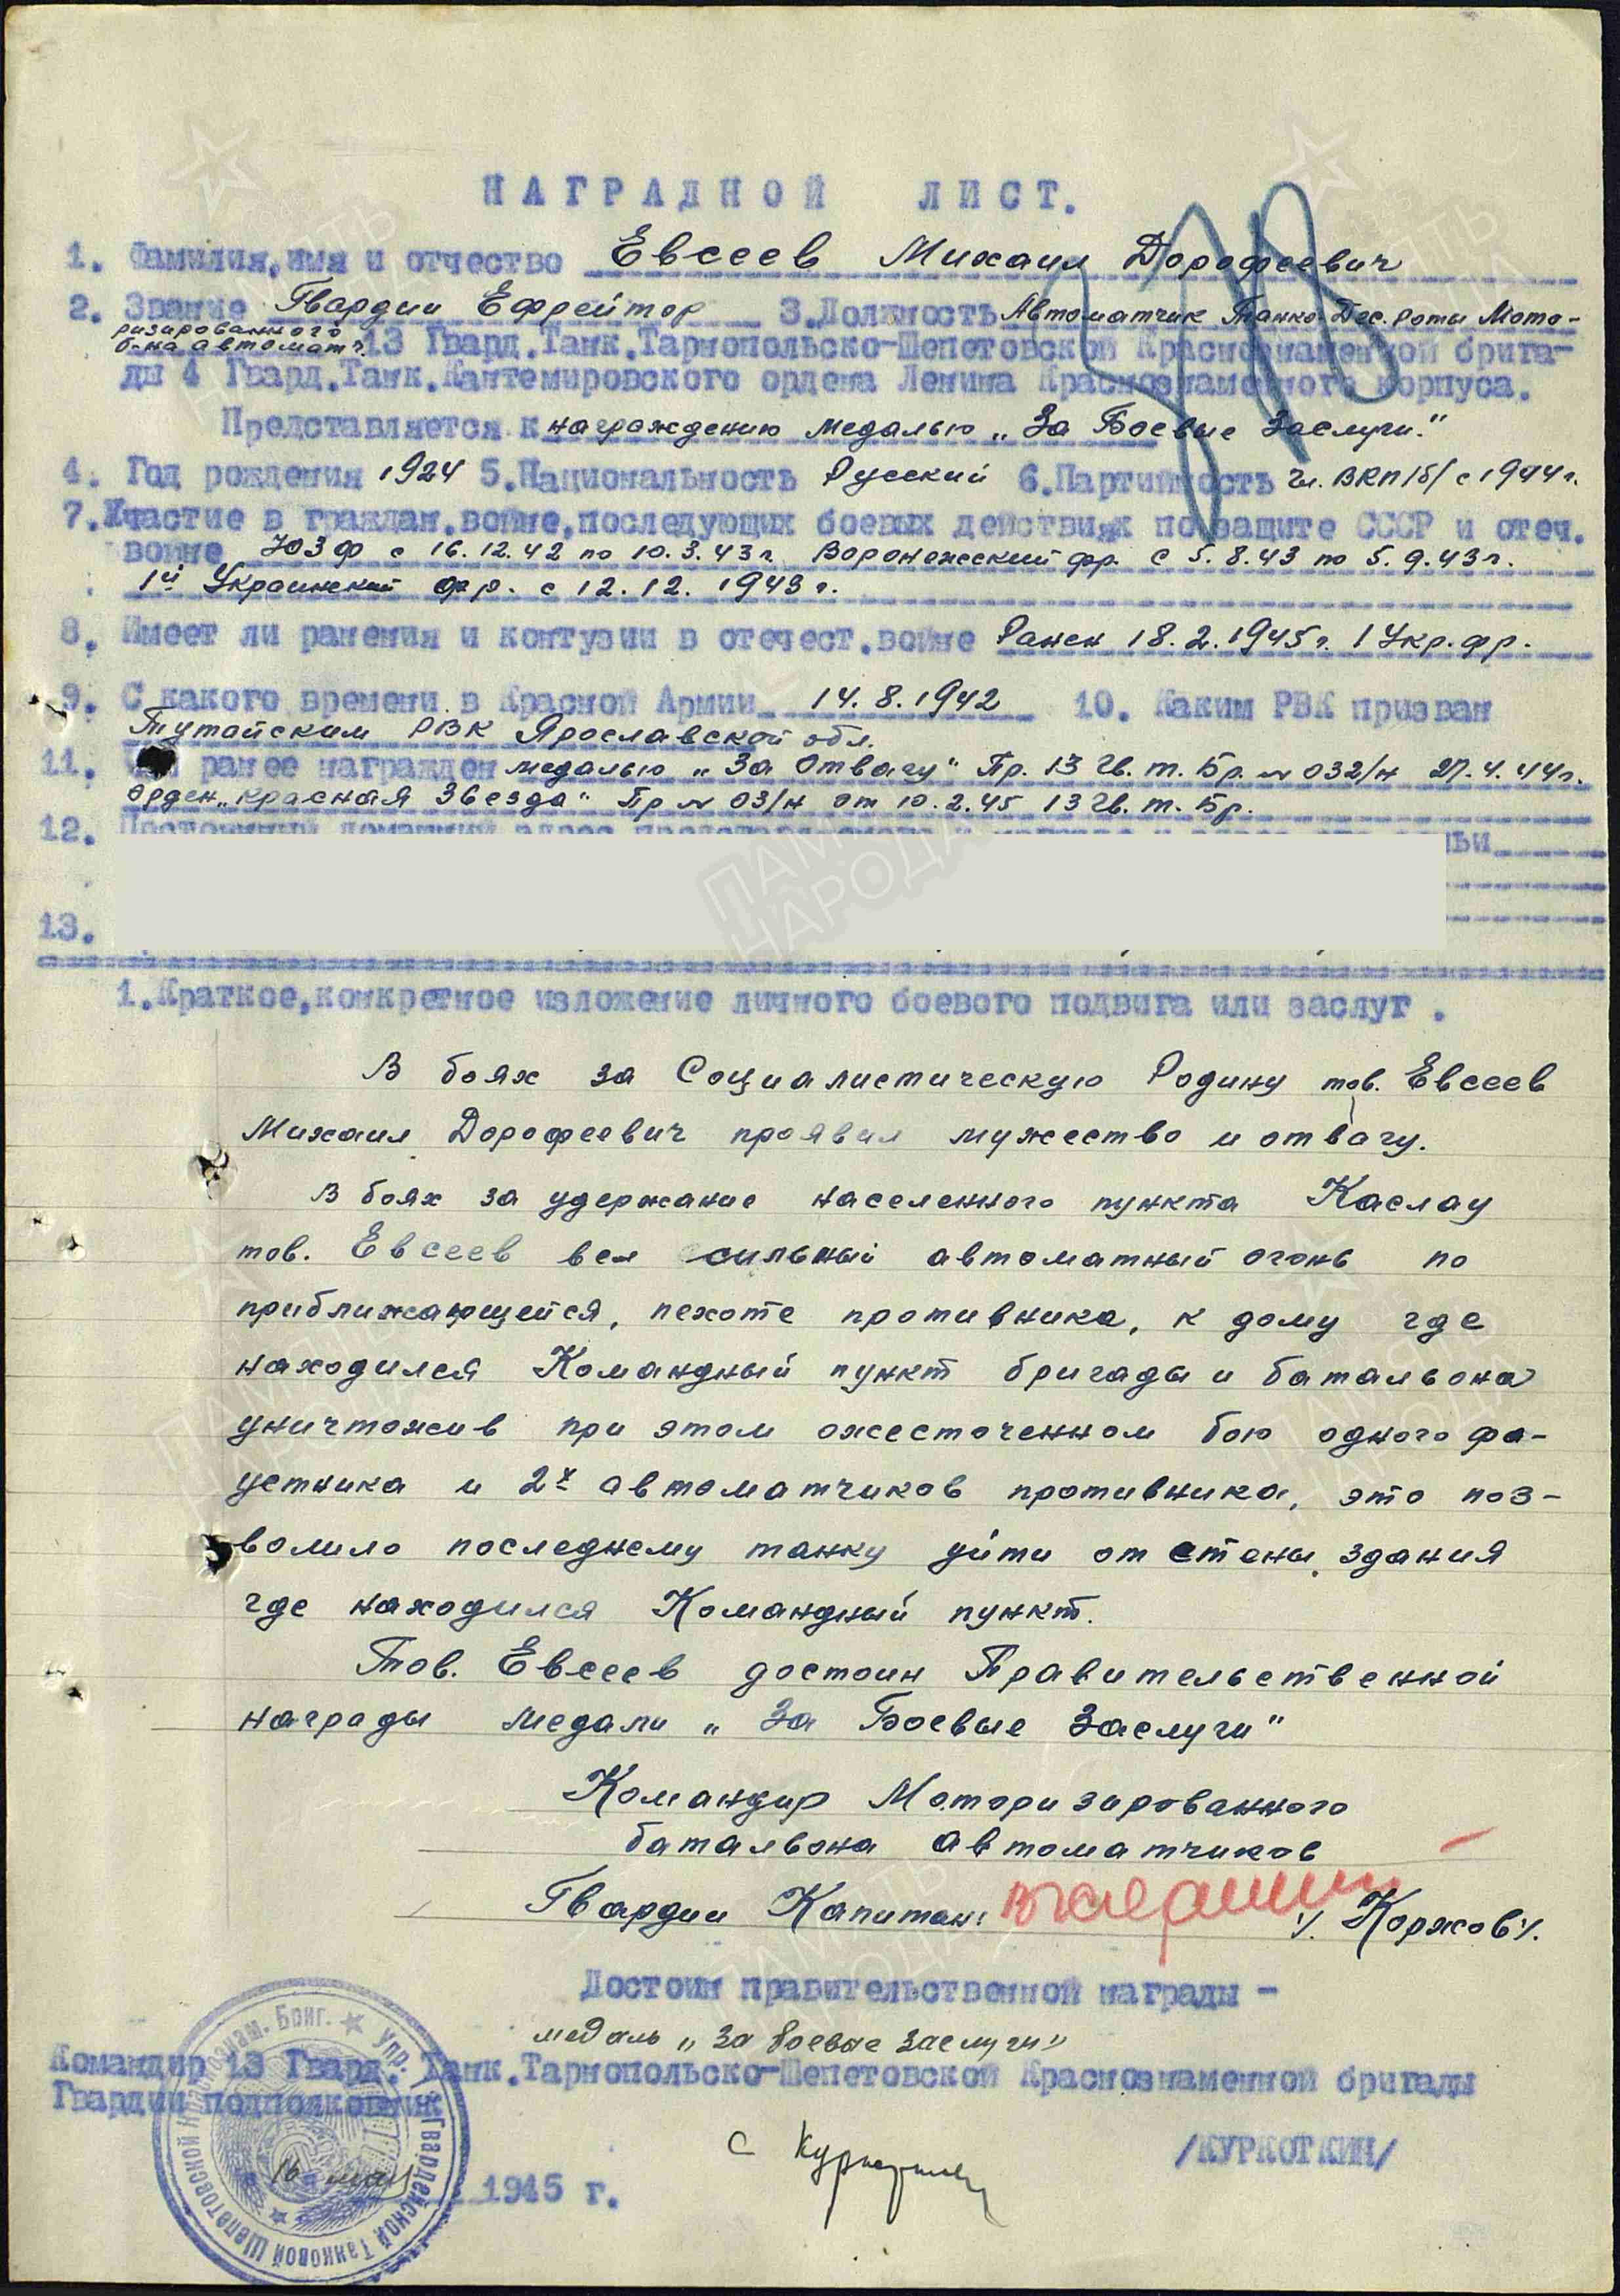 НАГРАДНОЙ ЛИСТ.
1. Фамилия, имя и отчество Евсеев Михаил Дорофеевич
2. Звание Гвардии Ефрейтор 3. Должность Автоматчик Танко-Дес. роты Мото-
ризированного
б-на автомат. 13 Гвард. Танк. Тарнопольско-Шепетовской Краснознаменной брига-
ды 4 Гвард. Танк. Кантемировского ордена Ленина Краснознаменного корпуса.
Представляется к награждению медалью „За Боевые Заслуги."
4. Год рождения 1924 5. Национальность Русский 6. Партийность Чл. ВКП/б/ с 1944 г.
7. Участие в граждан. войне, последующих боевых действиях по защите СССР и отеч.
войне ЮЗФ с 16.12.42 по 10.3.43 г. Воронежский фр. с 5.8.43 по 5.9.43 г.
1й Украинский фр. с 12.12.1943 г.
8. Имеет ли ранения и контузии в отечест. войне Ранен 18.2.1945 г. 1 Укр. фр.
9. С какого времени в Красной Армии 14.8.1942 10. Каким РВК призван
Тутайским РВК Ярославской обл.
11. ранее награжден медалью „За Отвагу" Пр. 13 Гв. т. Бр. № 032/н 27.4.44 г.
орден „Красная Звезда" Пр № 03/н от 10.2.45 13 Гв. т. Бр.
12.
13.
1. Краткое, конкретное изложение личного боевого подвига или заслуг.
В боях за Социалистическую Родину тов. Евсеев
Михаил Дорофеевич проявил мужество и отвагу.
В боях за удержание населенного пункта Каслау
тов. Евсеев вел сильный автоматный огонь по
приближающейся, пехоте противника, к дому где
находился Командный пункт бригады и батальона
уничтожив при этом ожесточенном бою одного фа-
устника и 2х автоматчиков противника, это поз-
волило последнему танку уйти от стены здания
где находился Командный пункт.
Тов. Евсеев достоин Правительственной
награды медали „За Боевые Заслуги"
Командир Моторизированного
батальона автоматчиков
Гвардии Капитан: /Коржов/.
Достоин правительственной награды -
медаль „За боевые заслуги"
Командир 13 Гвард. Танк. Тарнопольско-Шепетовской Краснознаменной бригады
Гвардии подполковник
С Куркоткин /КУРКОТКИН/
16 мая 1945 г.
ПАМЯТЬ НАРОДА